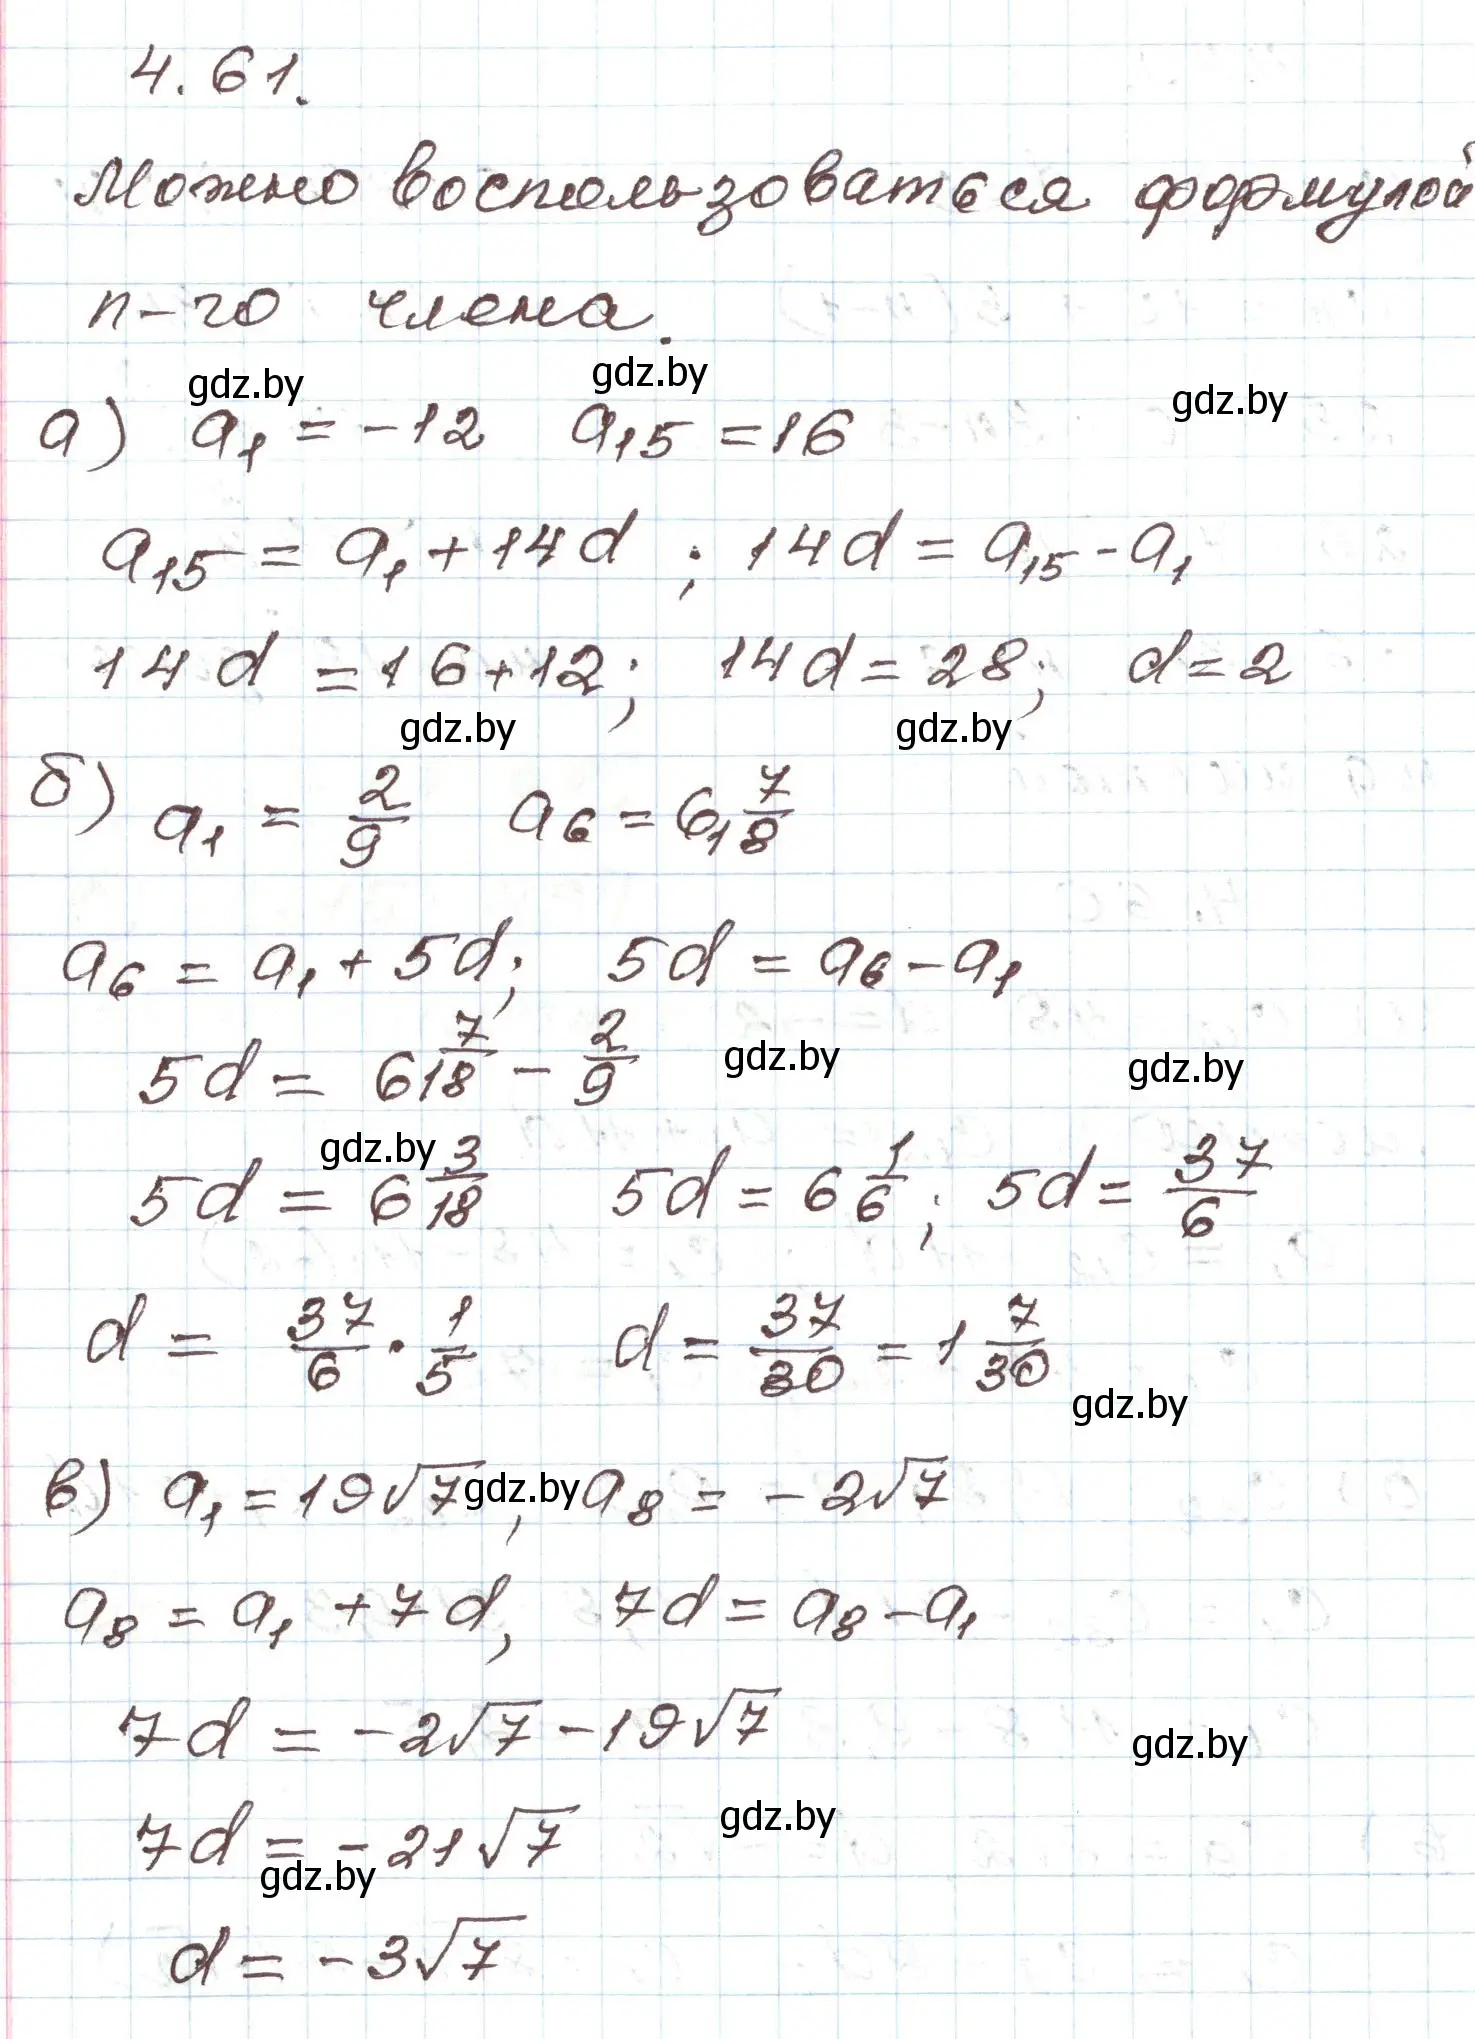 4.61.
Можно воспользоваться формулой
n-го члена.
gdz.by gdz.by gdz.by
а) a₁ = -12 a₁₅ = 16
a₁₅ = a₁ + 14d ; 14d = a₁₅ - a₁
14d = 16 + 12; 14d = 28; d = 2
gdz.by gdz.by
б) a₁ = 2/9 a₆ = 6 7/18
a₆ = a₁ + 5d; 5d = a₆ - a₁
5d = 6 7/18 - 2/9 gdz.by gdz.by
gdz.by
5d = 6 3/18 5d = 6 1/6; 5d = 37/6
d = 37/6 · 1/5 d = 37/30 = 1 7/30
gdz.by
в) a₁ = 19√7 gdz.by, a₈ = -2√7
a₈ = a₁ + 7d, 7d = a₈ - a₁
7d = -2√7 - 19√7
gdz.by
gdz.by
7d = -21√7
gdz.by
d = -3√7